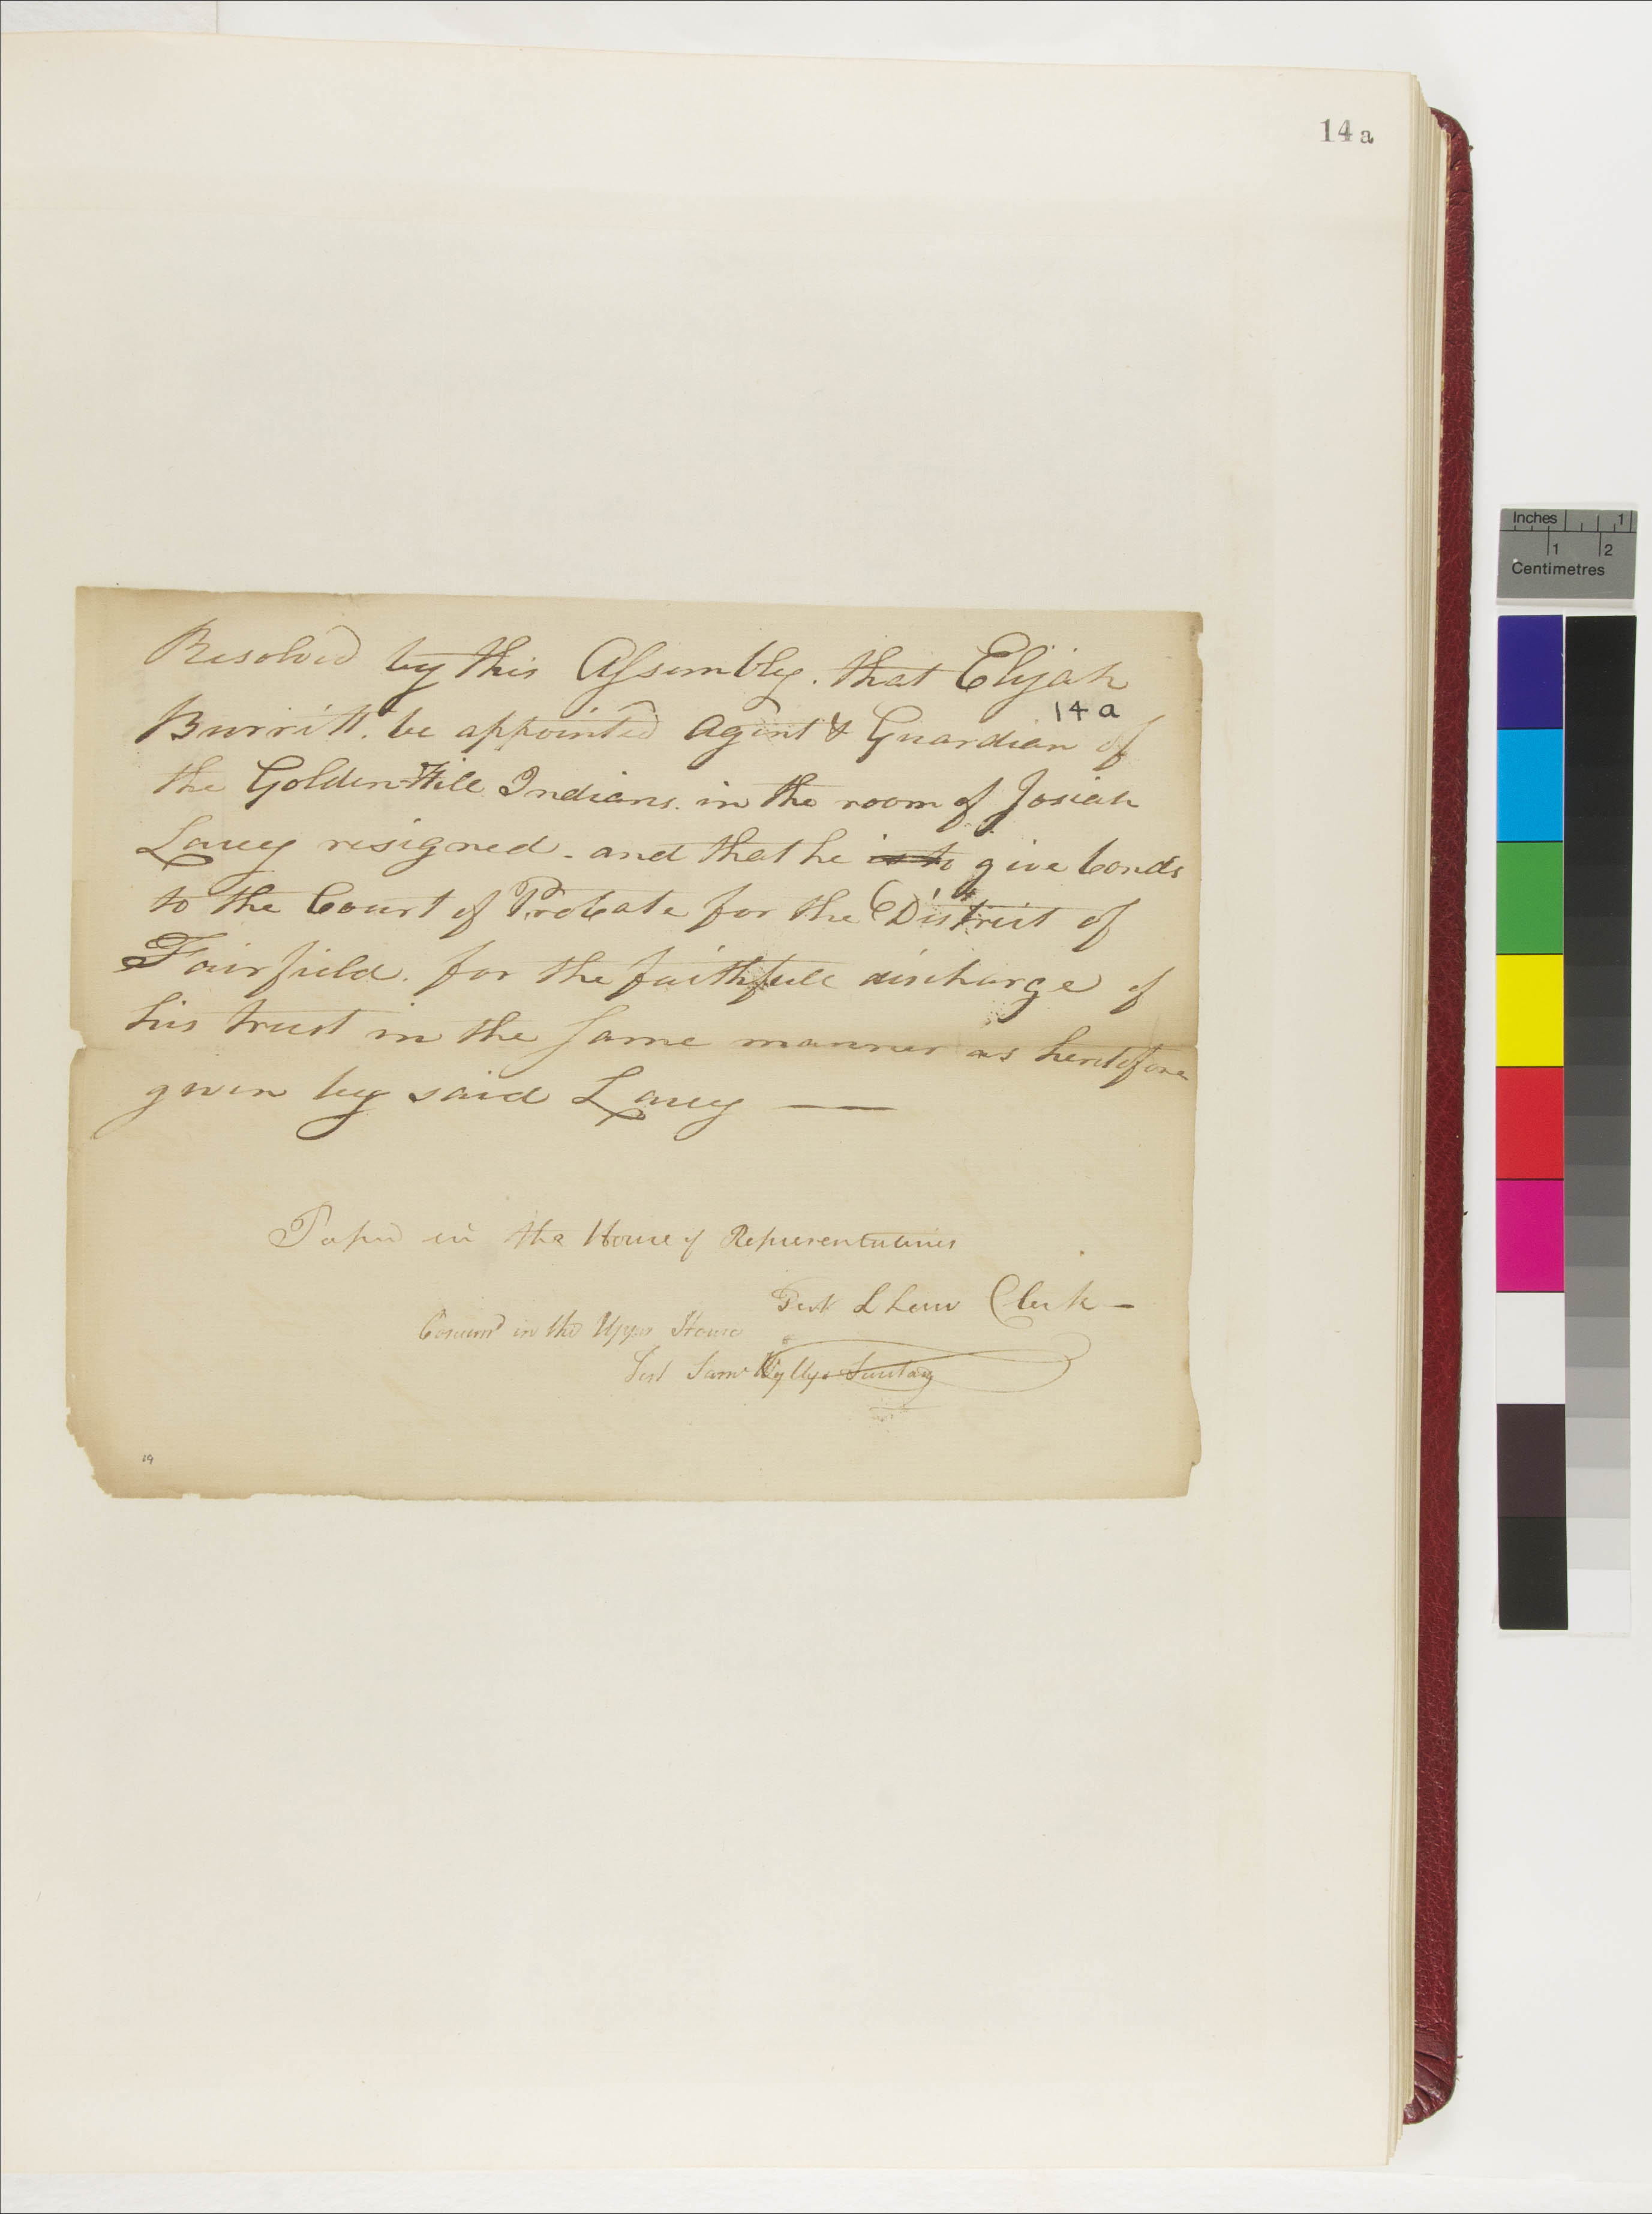 14 a
Resolved by this Assembly. that Elijah
14 a
Burritt. be appointed Agent & Guardian of
the Golden Hill Indians. in the room of Josiah
Lacey resigned - and that he is to give bonds
to the Court of Probate for the District of
Fairfield. for the faithfull discharge of
his trust in the same manner as heretofore
given by said Lacey —
Passd in the House of Representatives
Test Clerk —
Concurrd in the Upper House
Test Saml Wyllys Secretary
19
Inches 1
1 2
Centimetres